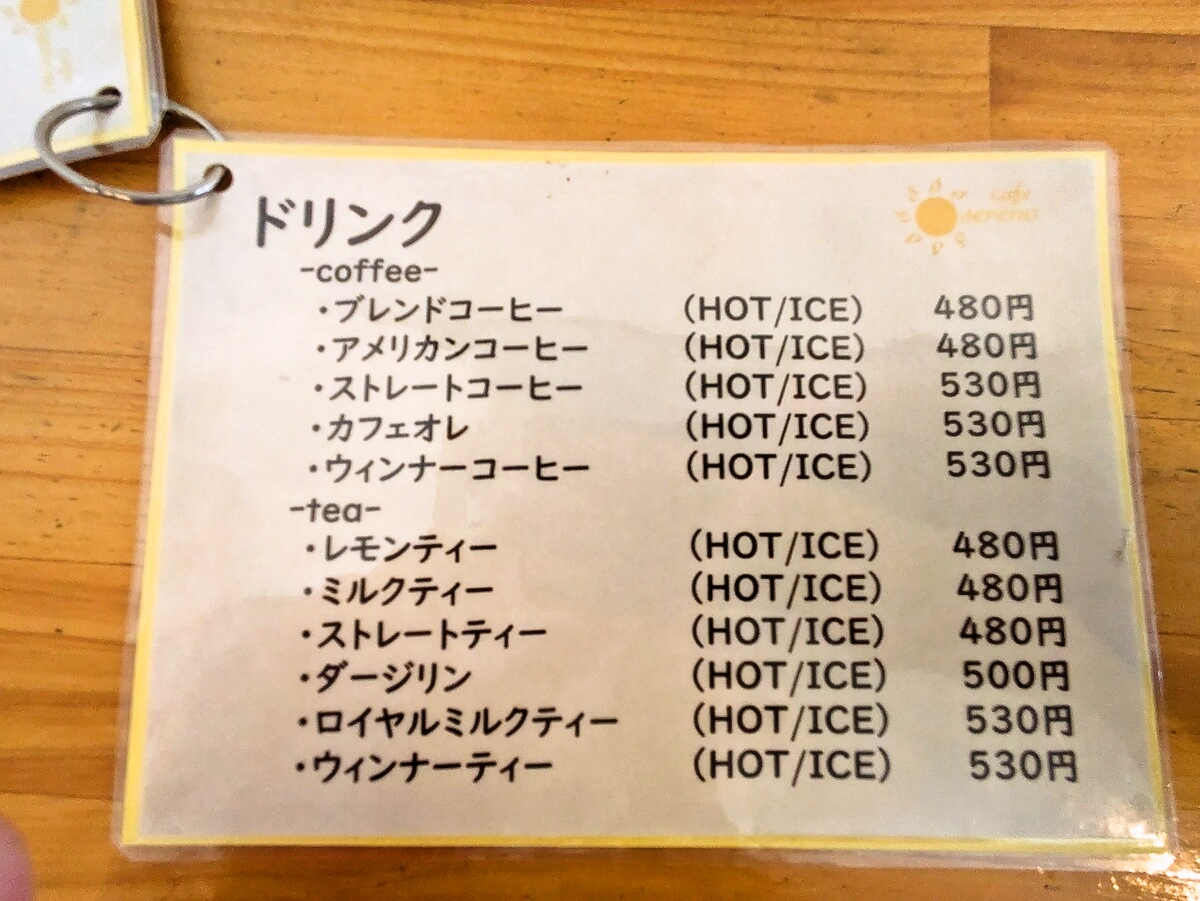 ドリンク
cafe
sereno
-coffee-
・ブレンドコーヒー (HOT/ICE) 480円
・アメリカンコーヒー (HOT/ICE) 480円
・ストレートコーヒー (HOT/ICE) 530円
・カフェオレ (HOT/ICE) 530円
・ウィンナーコーヒー (HOT/ICE) 530円
-tea-
・レモンティー (HOT/ICE) 480円
・ミルクティー (HOT/ICE) 480円
・ストレートティー (HOT/ICE) 480円
・ダージリン (HOT/ICE) 500円
・ロイヤルミルクティー (HOT/ICE) 530円
・ウィンナーティー (HOT/ICE) 530円